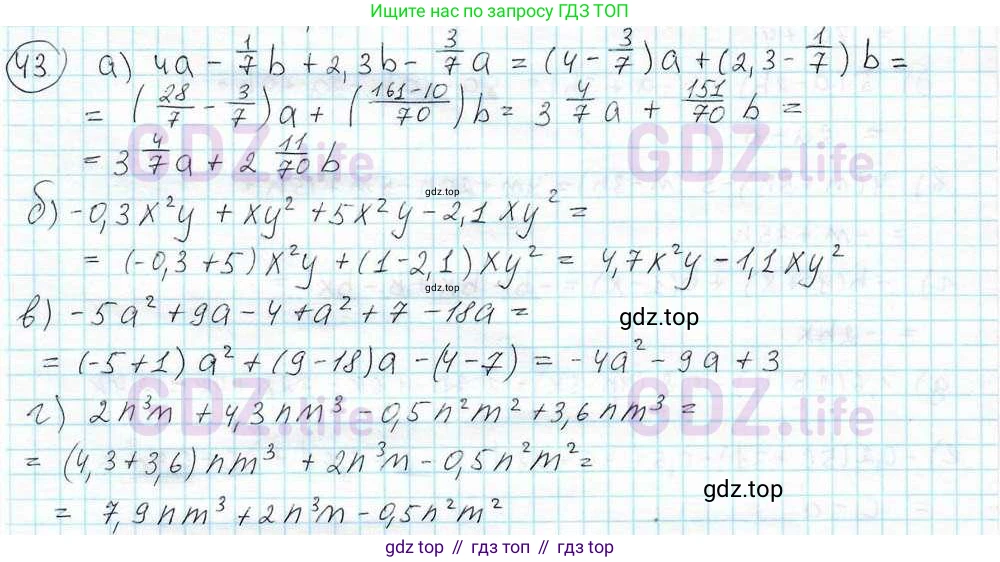 Ищите нас по запросу ГДЗ ТОП
43) а) 4a - 1/7 b + 2,3b - 3/7 a = (4 - 3/7)a + (2,3 - 1/7) b =
= (28/7 - 3/7)a + (161-10/70)b = 3 4/7 a + 151/70 b =
= 3 4/7 a + 2 11/70 b
GDZ.life GDZ.life
б) -0,3x²y + xy² + 5x²y - 2,1xy² =
gdz.top
= (-0,3+5)x²y + (1-2,1)xy² = 4,7x²y - 1,1xy²
gdz.top
в) -5a² + 9a - 4 + a² + 7 - 18a =
gdz.top
= (-5+1)a² + (9-18)a - (4-7) = -4a² - 9a + 3
GDZ.life GDZ.life
г) 2n³m + 4,3nm³ - 0,5n²m² + 3,6nm³ =
= (4,3+3,6)nm³ + 2n³m - 0,5n²m² =
gdz.top
= 7,9nm³ + 2n³m - 0,5n²m²
gdz top // гдз топ // gdz top